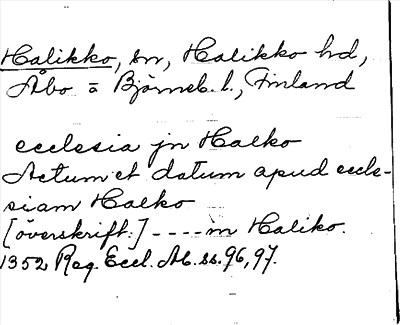 Halikko, sn, Halikko hd,
Åbo o Björneb. l., Finland
ecclesia jn Halko
Actum et datum apud eccle-
siam Halko
[överskrift:] ----m Haliko.
1352 Reg. Eccl. Ab. ss. 96, 97.